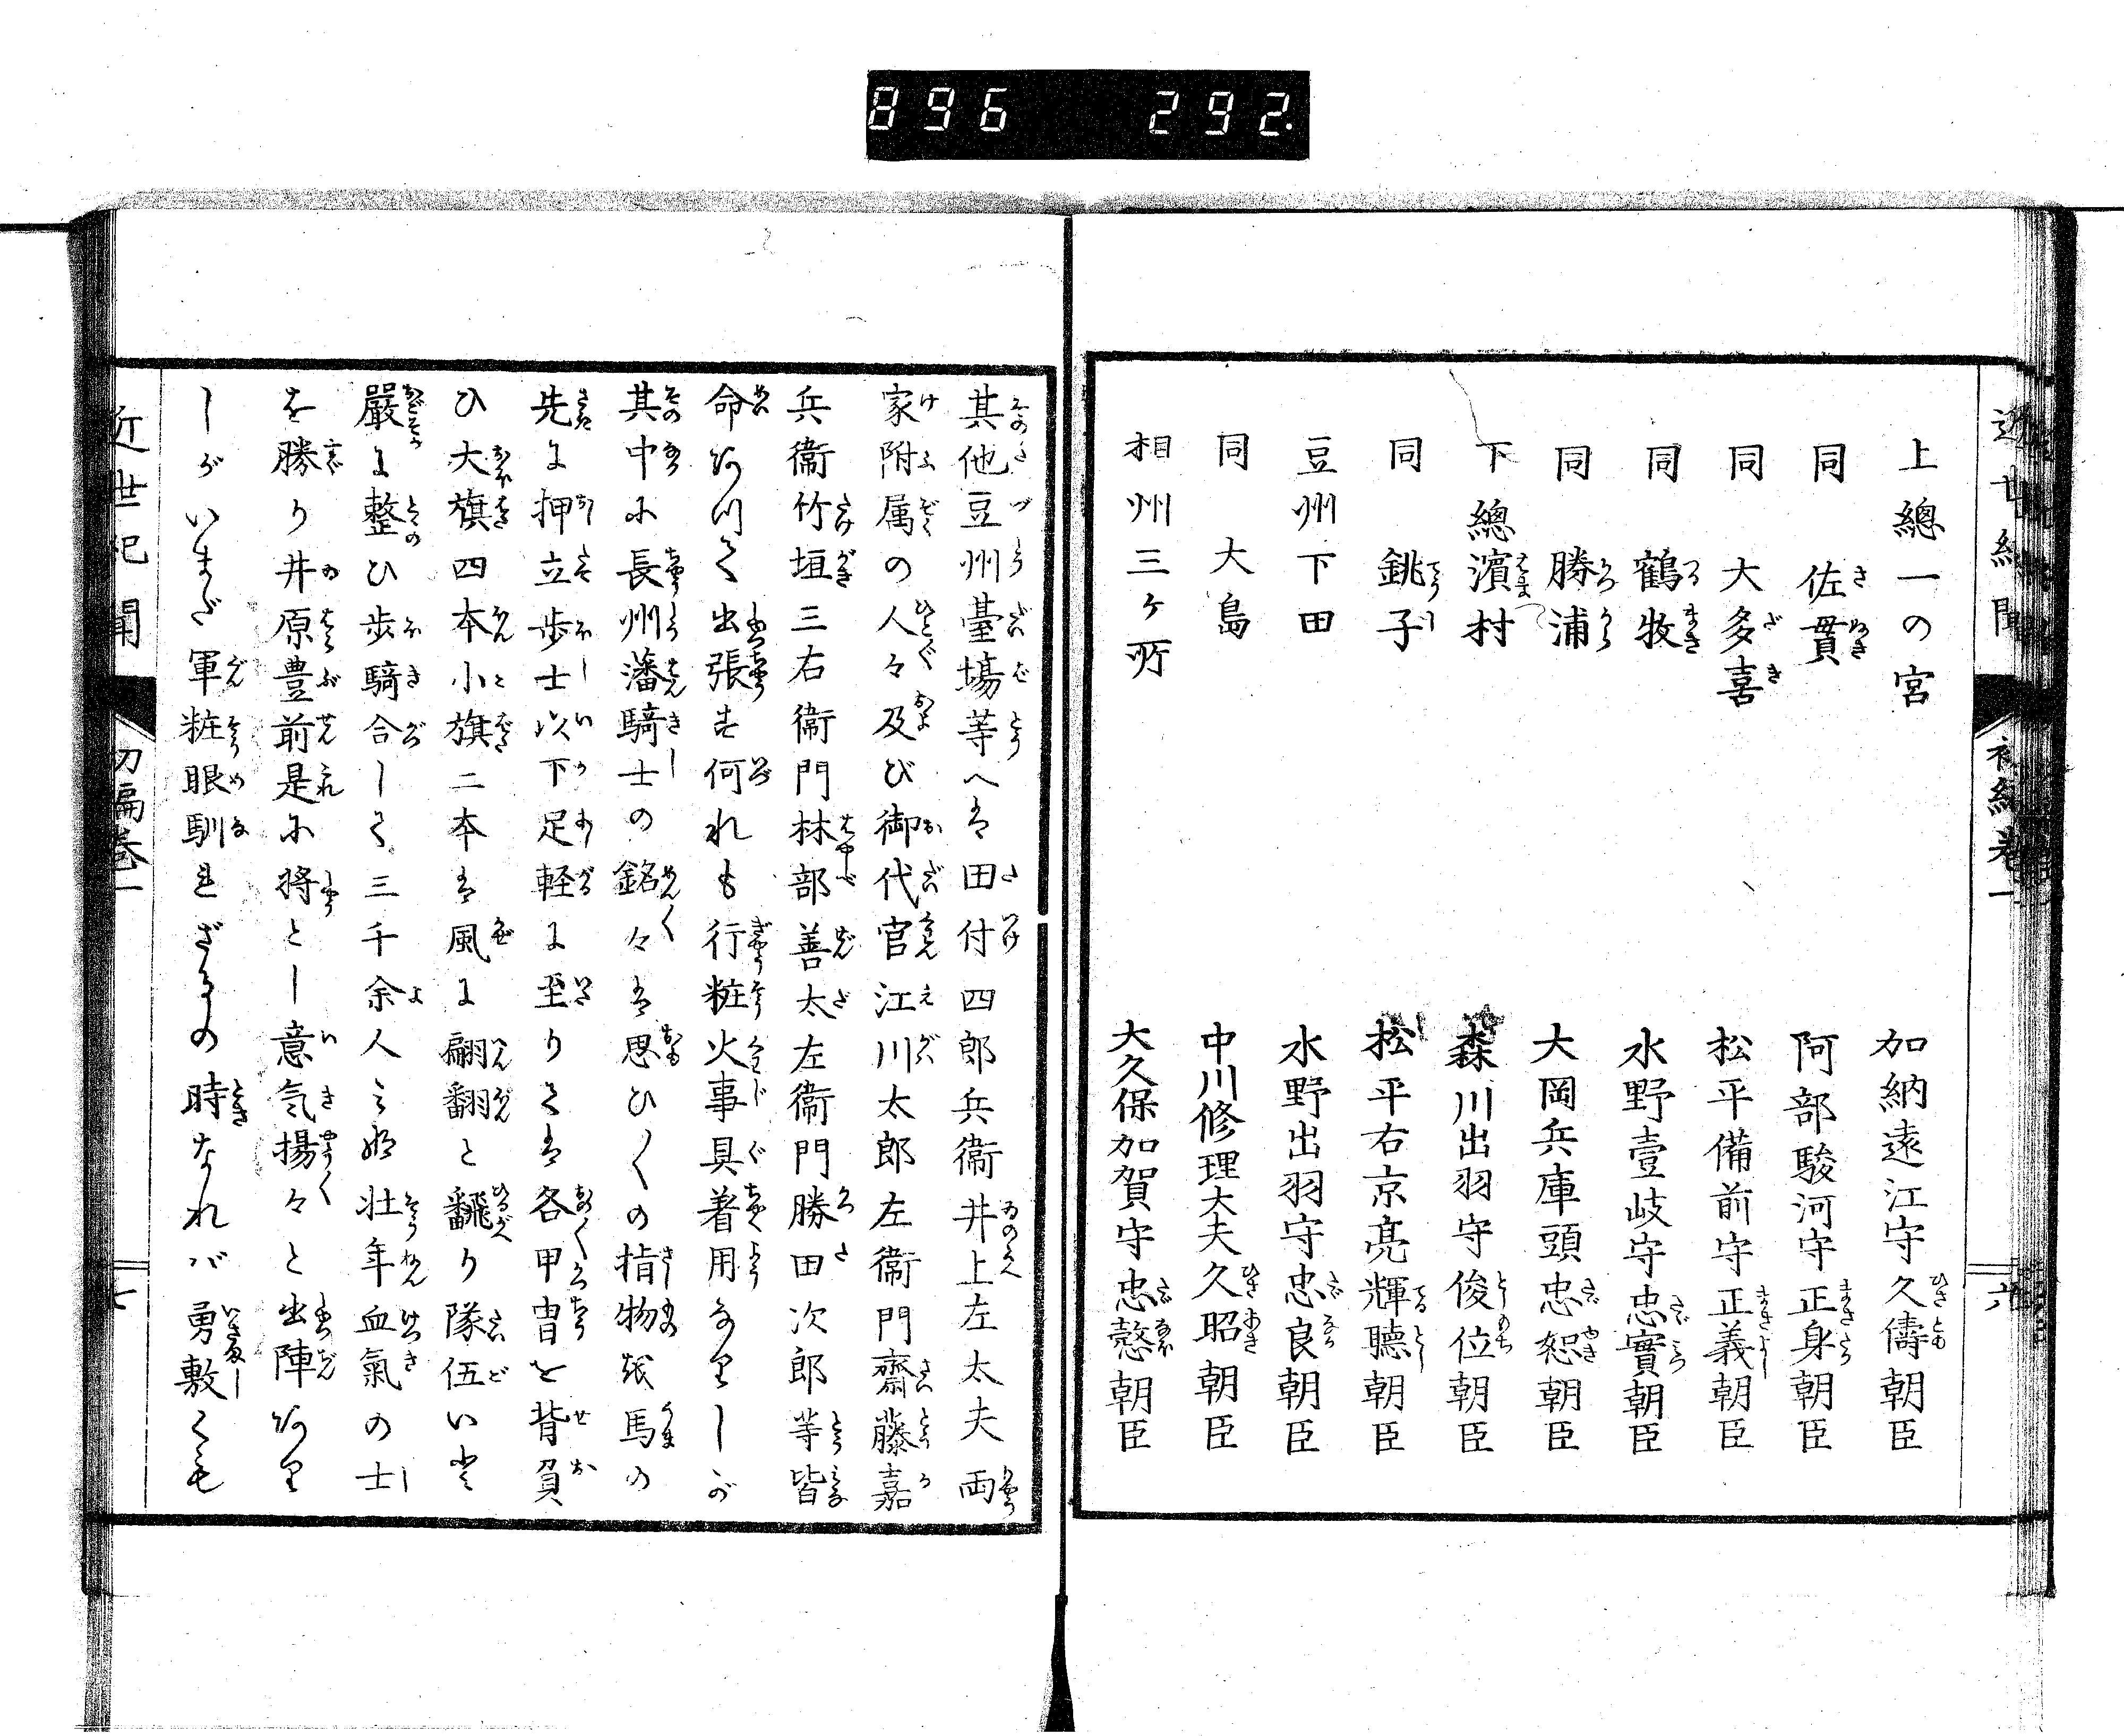 896 292.
近世紀聞 初編巻一 六
上總一の宮 加納遠江守久儔朝臣
同 佐貫 阿部駿河守正身朝臣
同 大多喜 松平備前守正義朝臣
同 鶴牧 水野壹岐守忠實朝臣
同 勝浦 大岡兵庫頭忠恕朝臣
下總濱村 森川出羽守俊位朝臣
同 銚子 松平右京亮輝聴朝臣
豆州下田 水野出羽守忠良朝臣
同 大島 中川修理大夫久昭朝臣
相州三ヶ所 大久保加賀守忠愨朝臣
其他豆州臺場等へは田付四郎兵衞井上左太夫両
家附属の人々及び御代官江川太郎左衞門齋藤嘉
兵衞竹垣三右衞門林部善太左衞門勝田次郎等皆
命ありて出張す何れも行粧火事具着用なりしが
其中に長州藩騎士の銘々は思ひ〳〵の指物を馬の
先に押立歩士以下足軽に至りては各甲冑を背負
ひ大旗四本小旗二本は風に翩翻と飜り隊伍いと
嚴に整ひ歩騎合して三千余人みな壮年血氣の士
を勝り井原豊前是に将とし意気揚々と出陣あり
しがいまだ軍粧眼馴れざるの時なれバ勇敷くも
近世紀聞 初編巻一 七